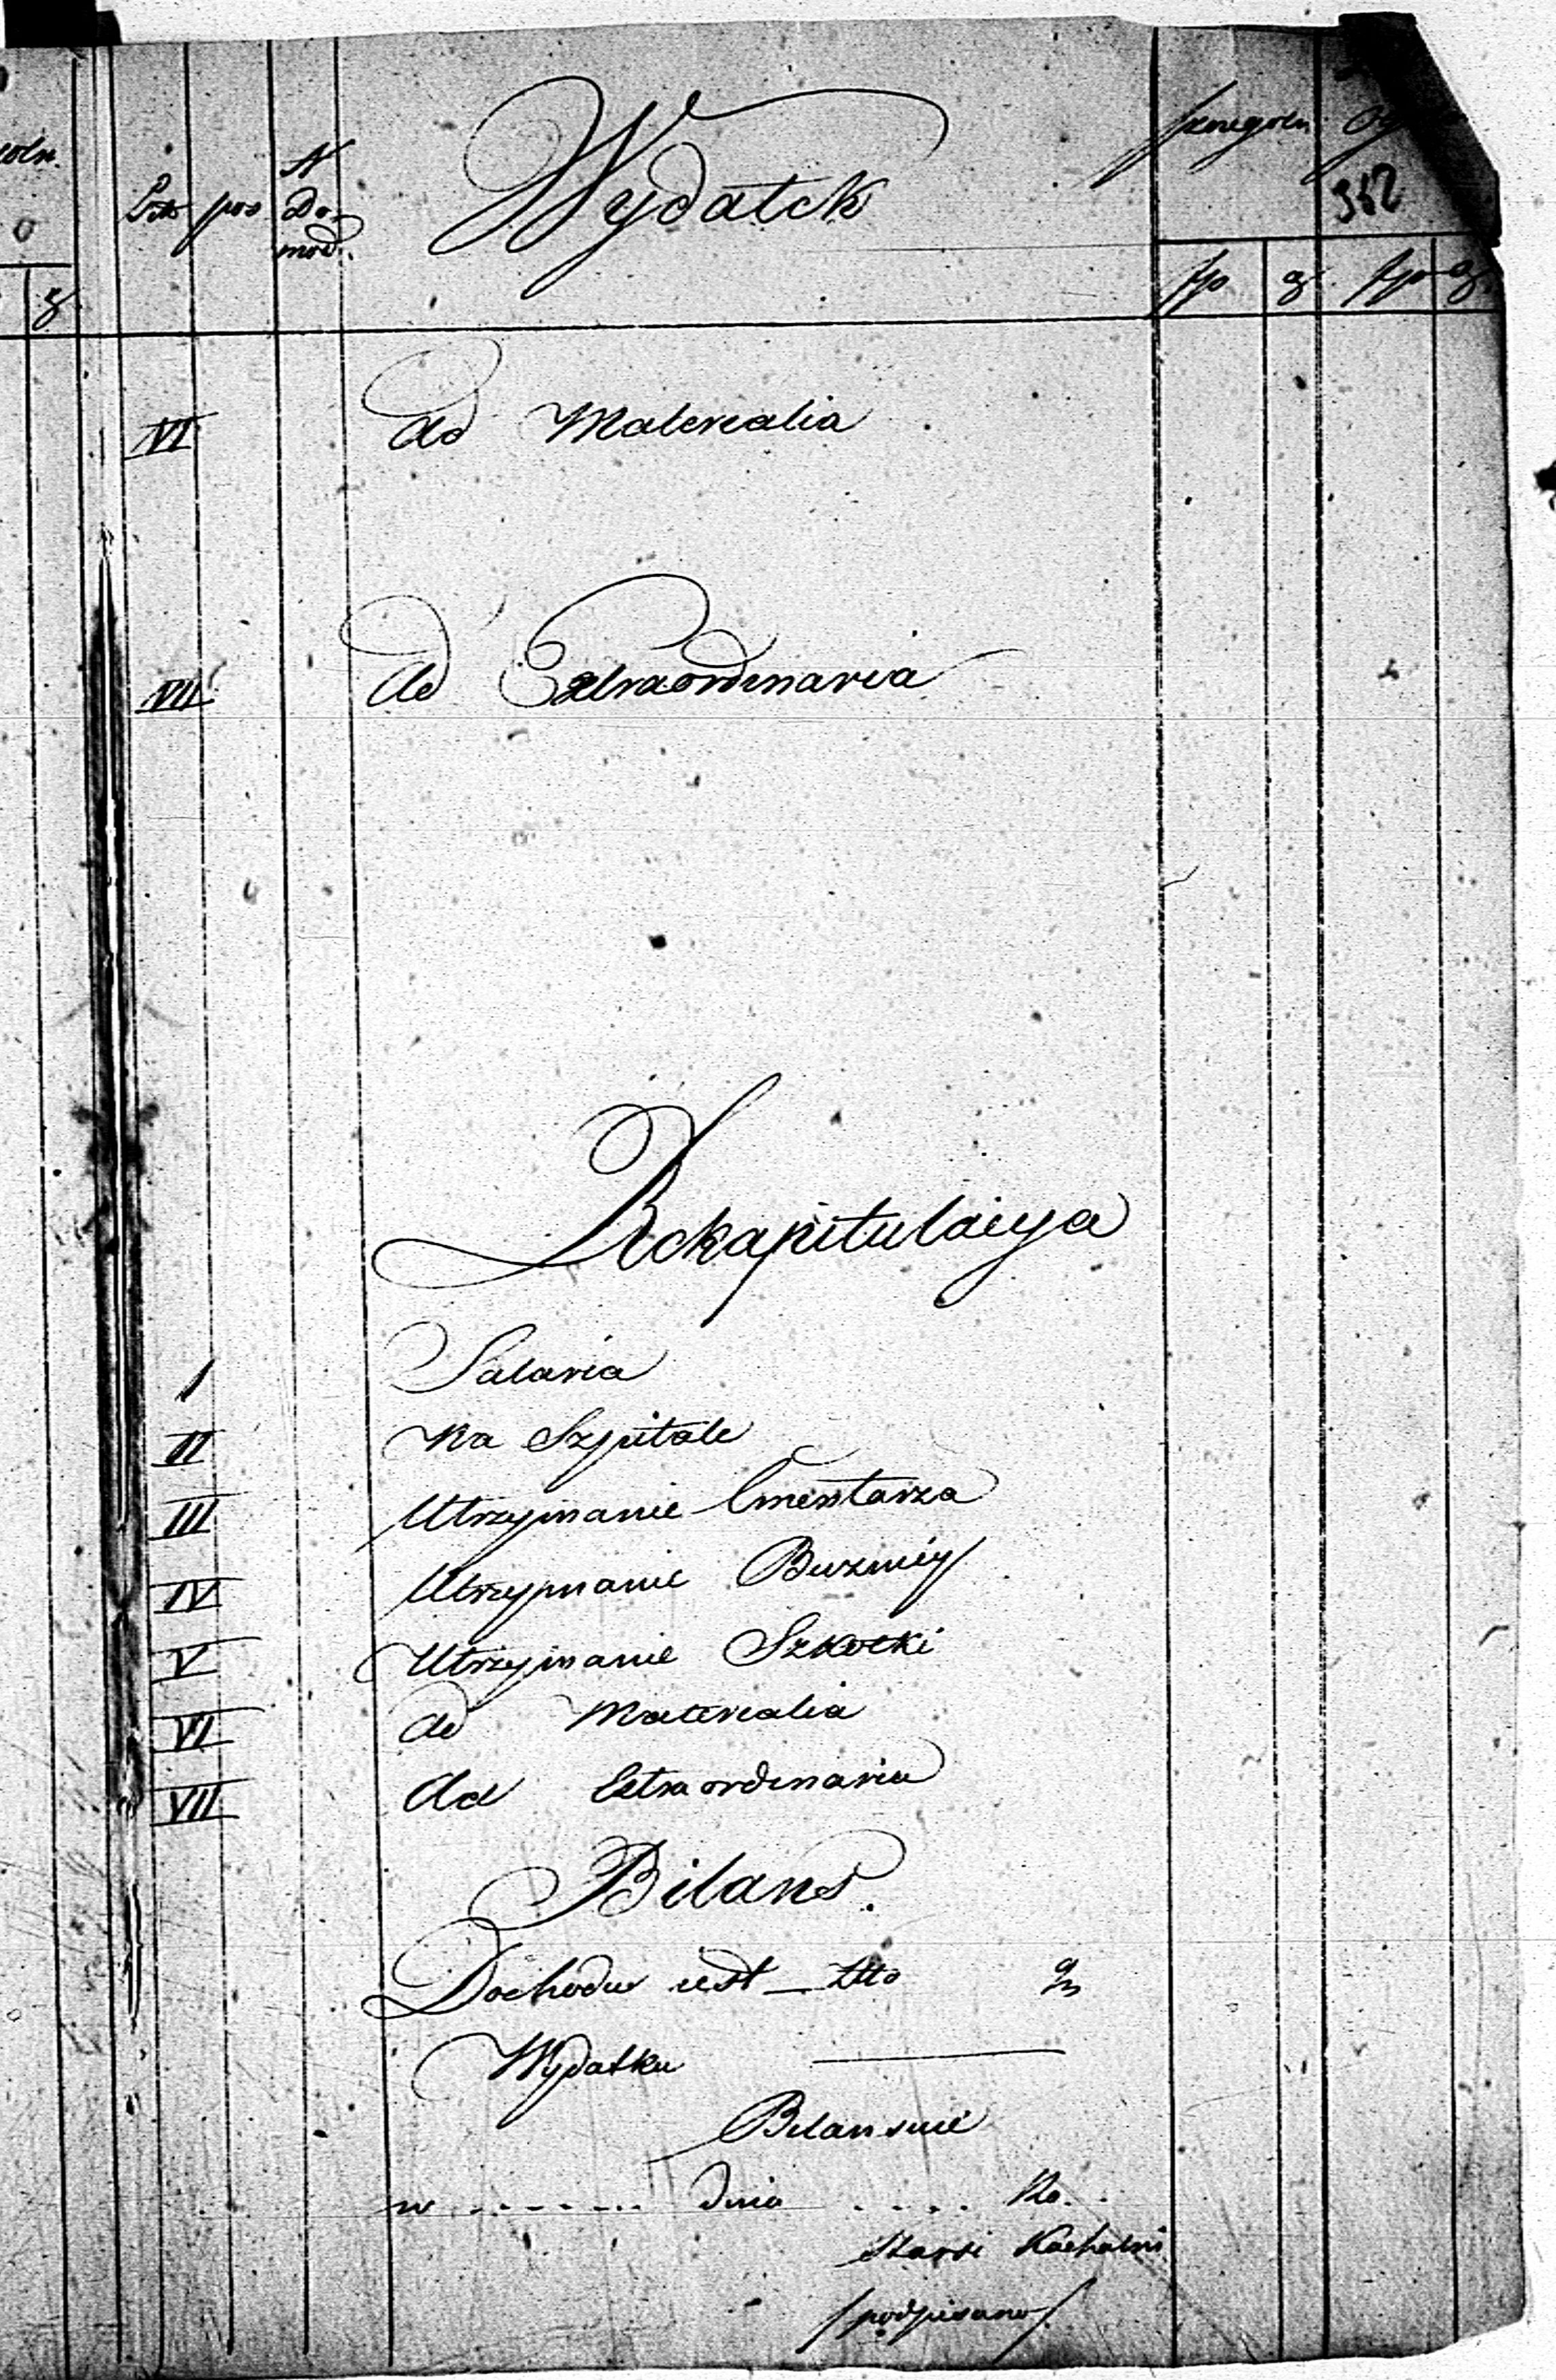 N
Do-
mod.
pos
Wydatek
szczególn
352
fl
g
fl
g
g
VI
Ad Materialia
VII
Ad Extraordinaria
Rekapitulacya
I
Salaria
II
Na Szpitale
III
Utrzymanie Cmentarza
IV
Utrzymanie Buznicy
V
Utrzymanie Szkołki
VI
Ad Materialia
VII
Ad Extraordinaria
Bilans.
Dochodu iest — Zło g
Wydatku
Bilansuie
w ........ dnia .... Ro.
Starsi Kachalni
/podpisano/